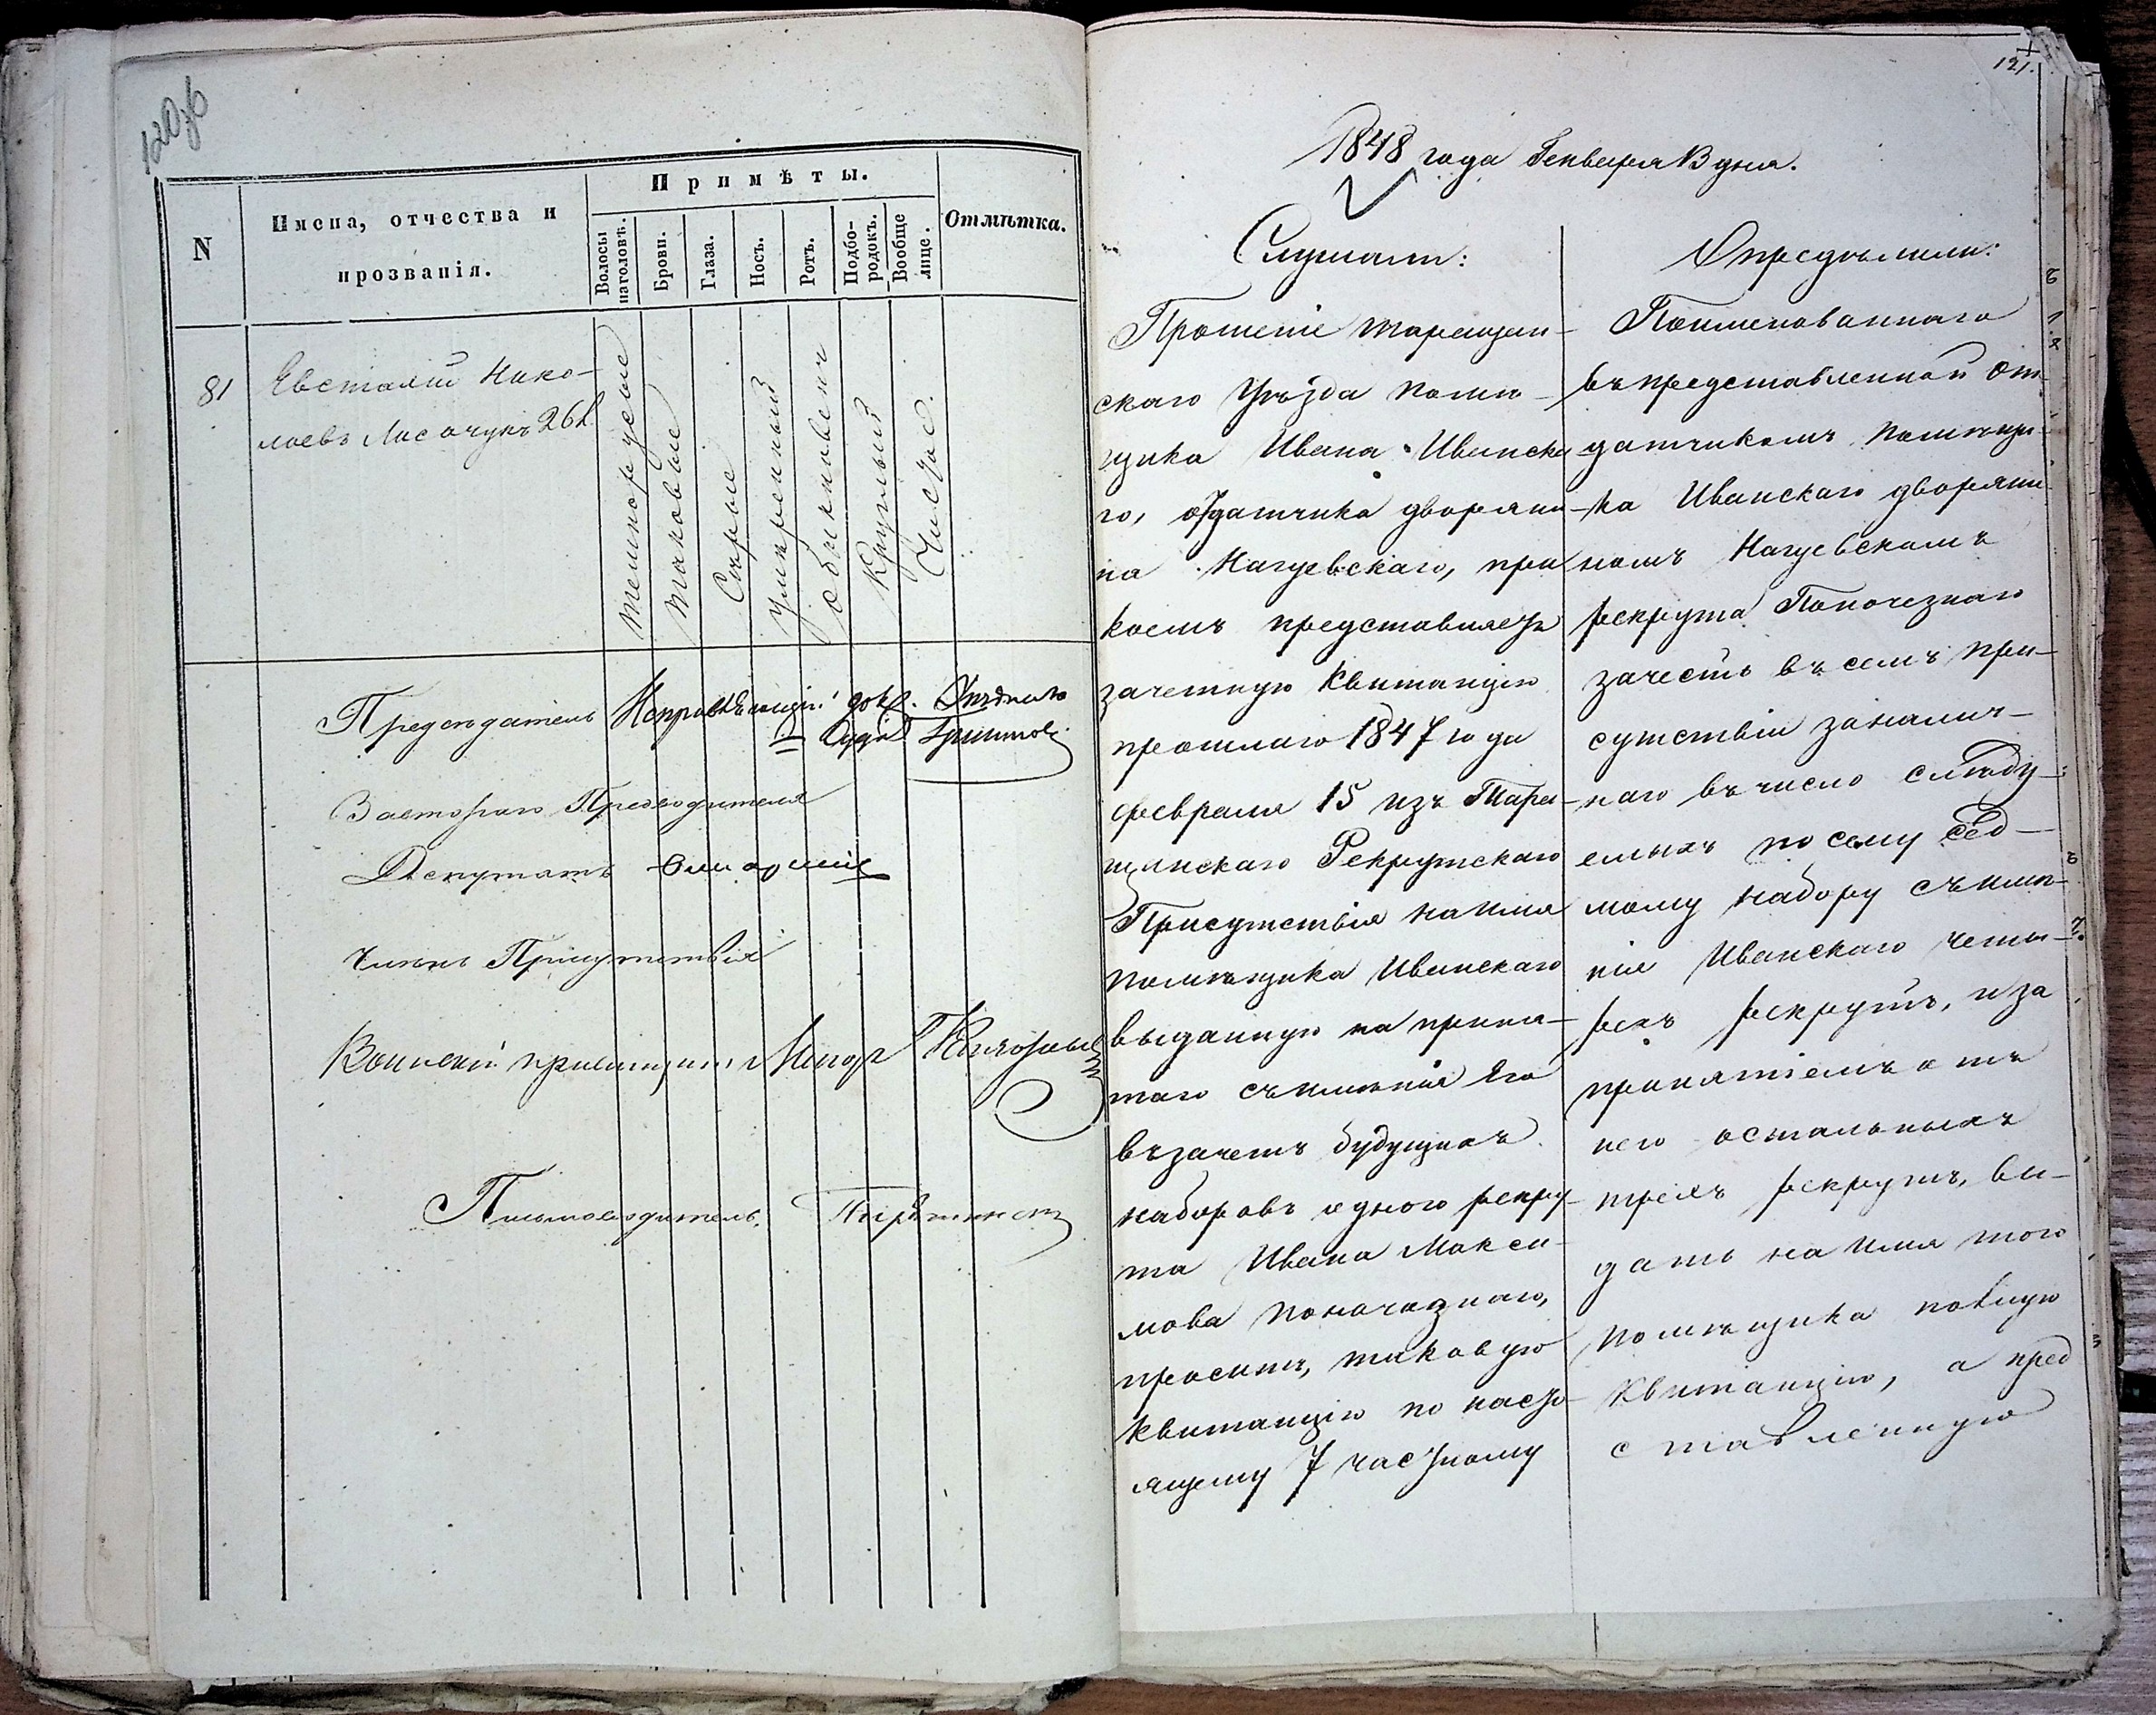 120об
N
Имена, отчества и
прозванія.
Примѣты.
Волосы
наголовѣ.
Брови.
Глаза.
Носъ.
Ротъ.
Подбо-
родокъ.
Вообще
лице.
Отмѣтка.
81
Евстафій Нико-
лаевъ Лисачукъ 26 л.
темнорусые
таковые
Сѣрые
умѣренный
обыкновенъ
Круглый
Чистое.
Предсѣдатель
Судія
За втораго Предводителя
Депутатъ
Членъ Присутствія
Воинскій пріемщикъ Маіоръ
Письмоводитель.
121.
1848 года Генваря 13 дня.
Слушали:
Прошеніе Таращан-
скаго Уѣзда помѣ-
щика Ивана Иванска
го, отдатчика дворяни
на Нагуевскаго, при
коемъ представляетъ
зачетную Квитанцію
прошлаго 1847 года
февраля 15 изъ Тара-
щанскаго Рекрутскаго
Присутствія на имя
помѣщика Иванскаго
выданную на приня-
таго съ имѣнія Его
въ зачетъ будущихъ
наборовъ одного рекру-
та Ивана Макси-
мова Поночезнаго,
проситъ, таковую
квитанцію по насто-
ящему 7 частному
Опредѣлили:
Поименованнаго
въ представленной От-
датчикомъ помѣщи-
ка Иванскаго дворяни
номъ Нагуевскимъ
рекрута Поночезнаго
зачесть въ семъ при-
сутствіи за налич-
наго въ число слѣду-
емыхъ по сему сед-
мому набору съ имѣ-
нія Иванскаго четы-
рехъ рекрутъ, и за
принятіемъ отъ
него остальныхъ
трехъ рекрутъ, вы-
дать на имя того
помѣщика новую
Квитанцію, а пред
ставленную